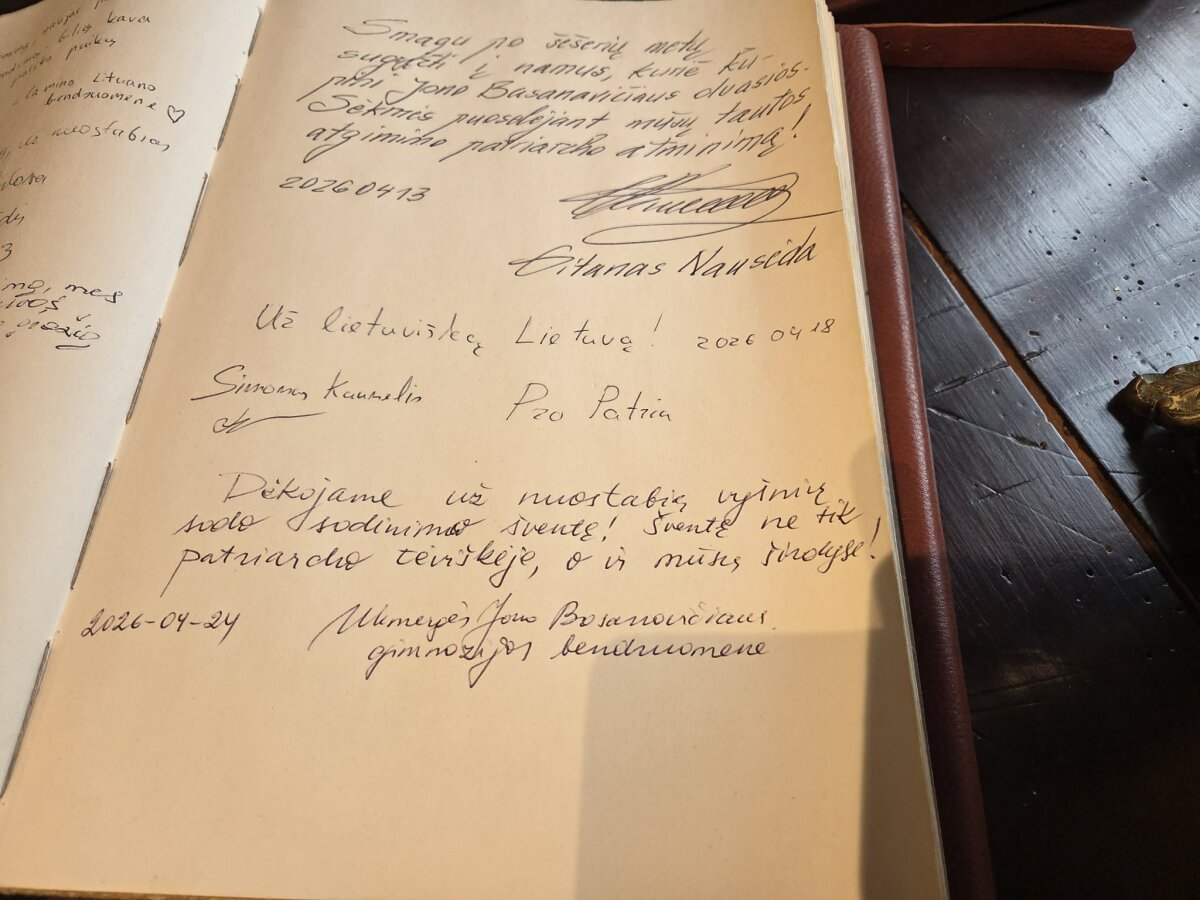 kava
puikų
Lituano
bendruomenė
už nuostabias
3
mes
Smagu po šešerių metų
sugrįžti į namus, kurie ku-
pini Jono Basanavičiaus dvasios.
Sėkmės puoselėjant mūsų tautos
atgimimo patriarcho atminimą!
20260413
Gitanas Nausėda
Už lietuvišką Lietuvą! 2026 04 18
Simonas Kaunelis Pro Patria
Dėkojame už nuostabią vyšnių
sodo sodinimo šventę! Šventę ne tik
patriarcho tėviškėje, o ir mūsų širdyse!
2026-04-24 Ukmergės Jono Basanavičiaus
gimnazijos bendruomenė